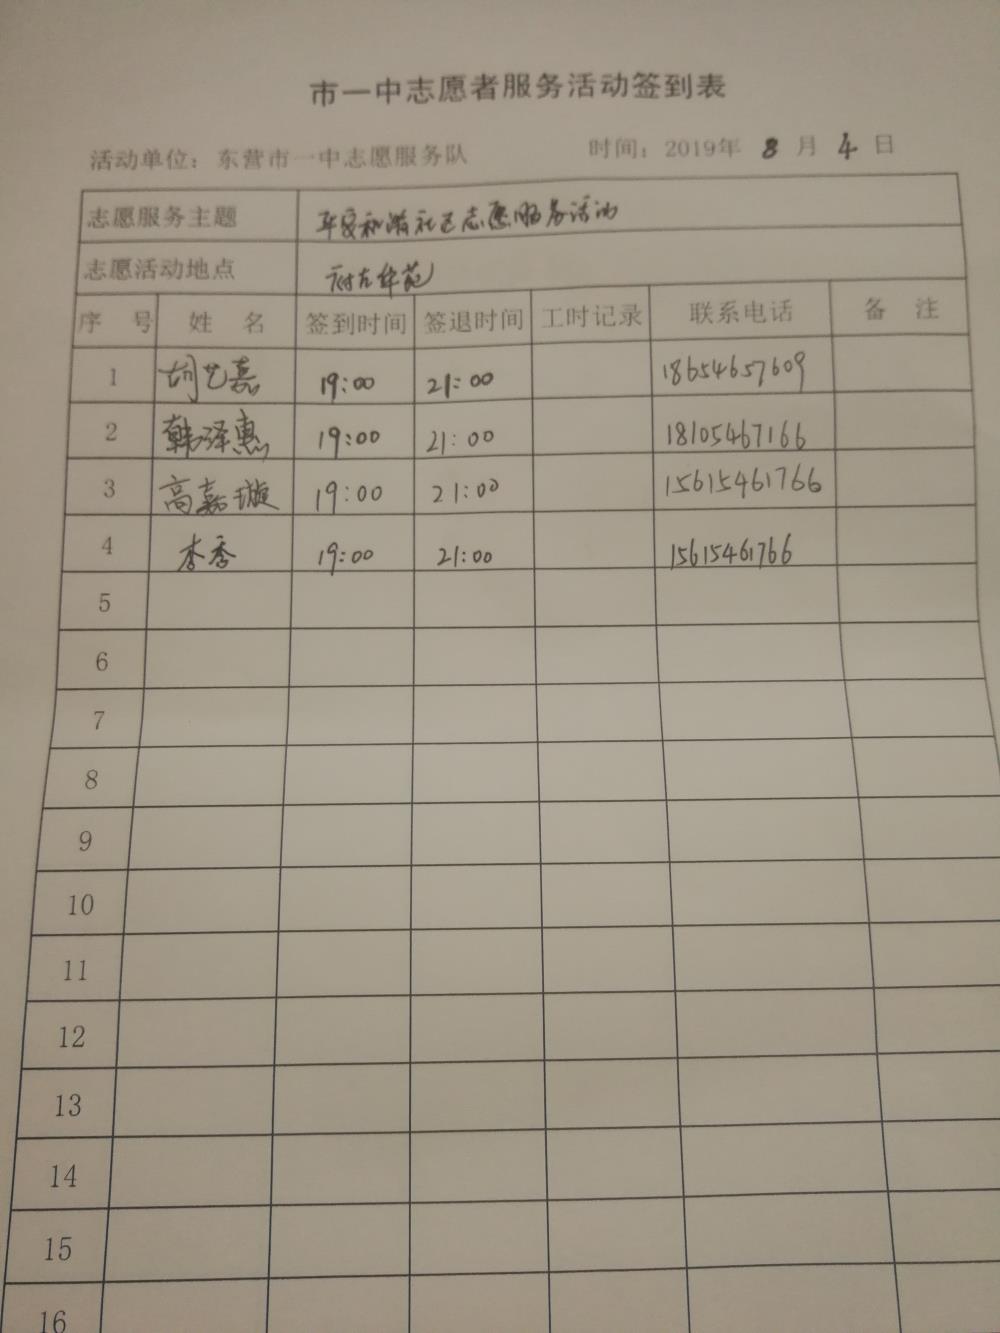 市一中志愿者服务活动签到表
活动单位：东营市一中志愿服务队 时间：2019年 8 月 4 日
志愿服务主题 平安和谐社区志愿服务活动
志愿活动地点 华苑
序 号 姓 名 签到时间 签退时间 工时记录 联系电话 备 注
1 艺嘉 19:00 21:00 18654657609
2 韩泽惠 19:00 21:00 18105467166
3 高嘉璇 19:00 21:00 15615461766
4 李秀 19:00 21:00 15615461766
5
6
7
8
9
10
11
12
13
14
15
16